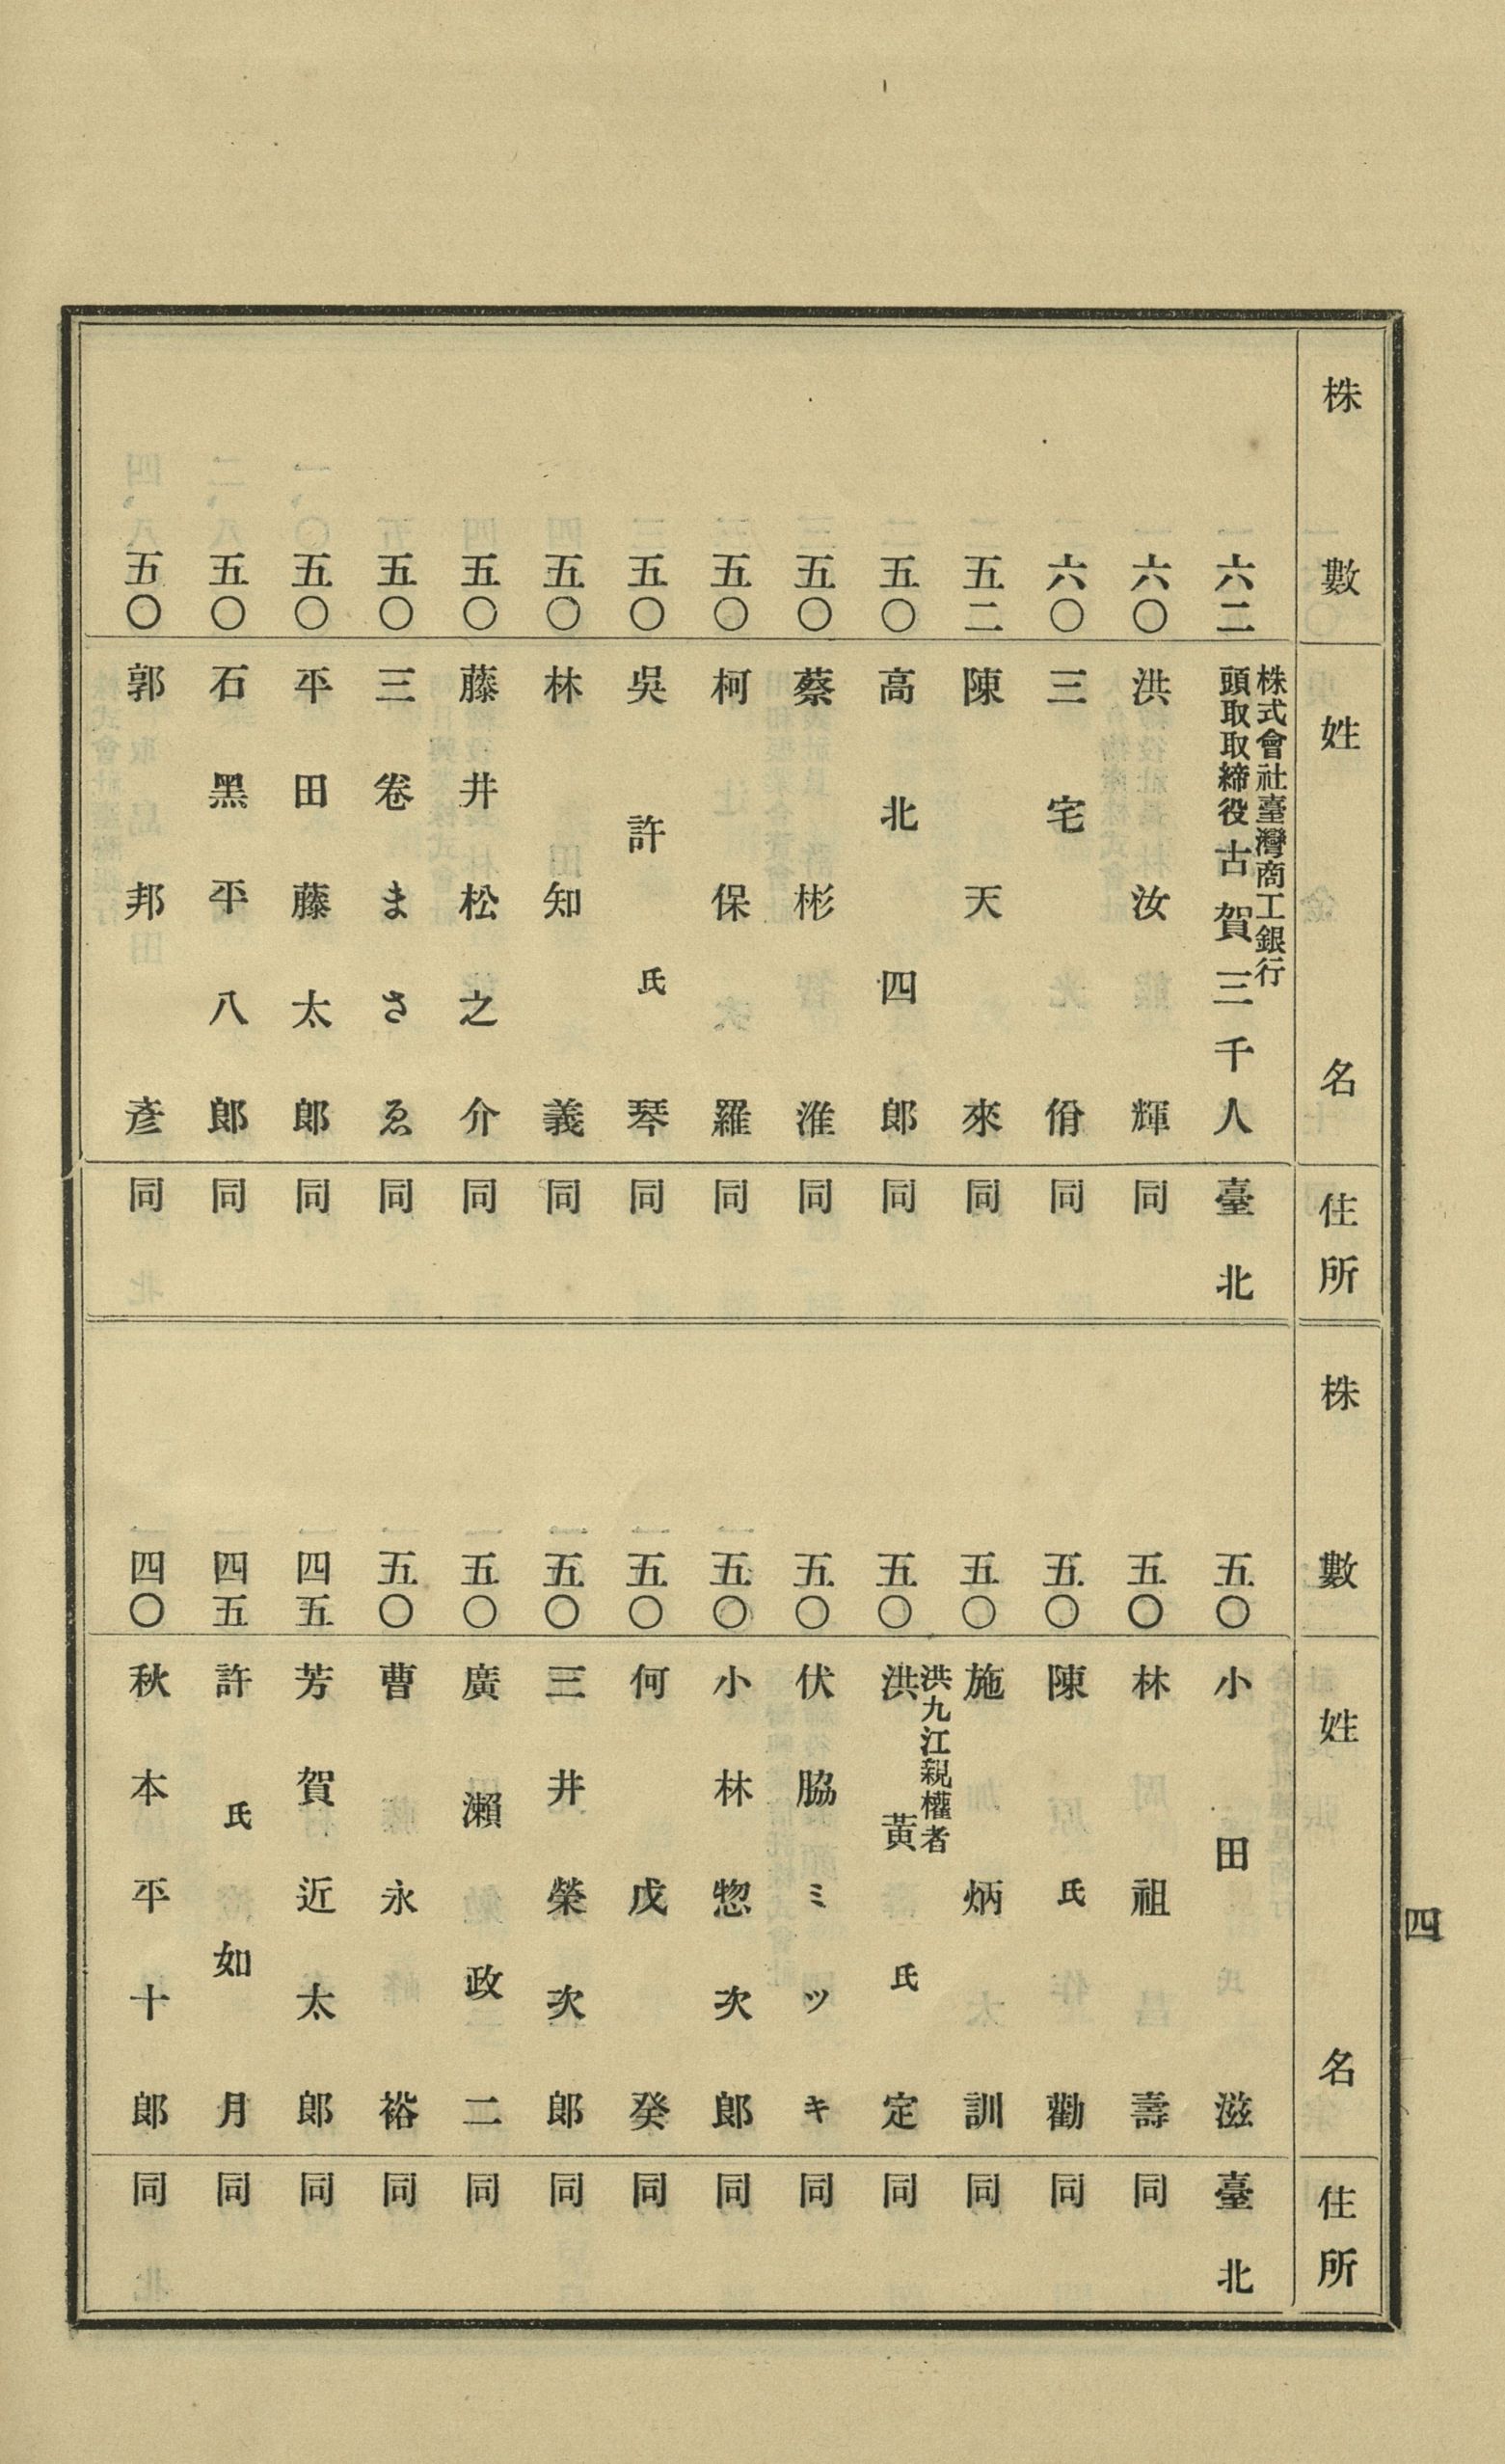 株數 姓名 住所
六二 株式會社臺灣商工銀行頭取取締役 古賀三千人 臺北
六〇 洪汝輝 同
六〇 三宅佾 同
五二 陳天來 同
五〇 高北四郎 同
五〇 蔡彬淮 同
五〇 柯保羅 同
五〇 吳許氏琴 同
五〇 林知義 同
五〇 藤井松之介 同
五〇 三卷まさゑ 同
五〇 平田藤太郎 同
五〇 石黑平八郎 同
五〇 郭邦彥 同
株數 姓名 住所
五〇 小田滋 臺北
五〇 林祖壽 同
五〇 陳氏勸 同
五〇 施炳訓 同
五〇 洪九江親權者 洪黃氏定 同
五〇 伏脇ミツキ 同
五〇 小林惣次郎 同
五〇 何戊癸 同
五〇 三井榮次郎 同
五〇 廣瀨政二 同
五〇 曹永裕 同
四五 芳賀近太郎 同
四五 許氏如月 同
四〇 秋本平十郎 同
四